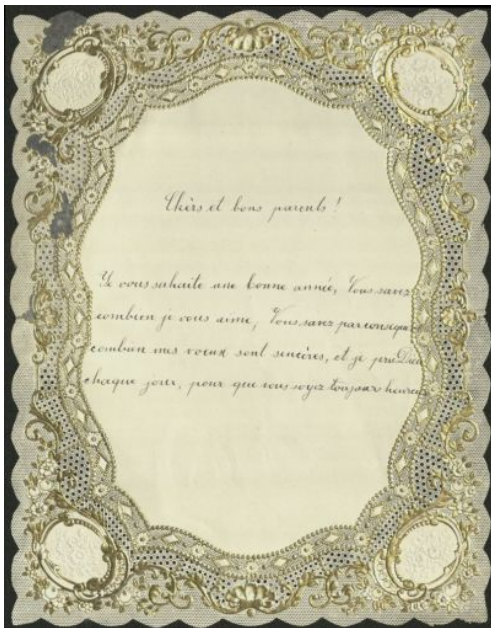 Chèrs et bons parents!
Je vous souhaite une bonne année, Vous savez
combien je vous aime, Vous savez par conséquent
combien mes voeux sont sencères, et je prie Dieu
chaque jour, pour que vous soyez toujours heureux